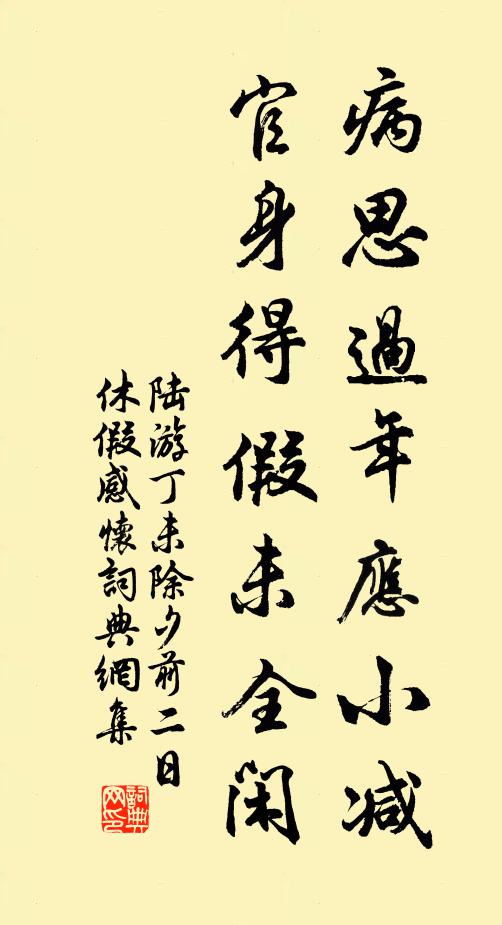 病思過年應小减
官身得假未全閑
陆游丁未除夕前二日
休假感懷詞典網集
詞典网印